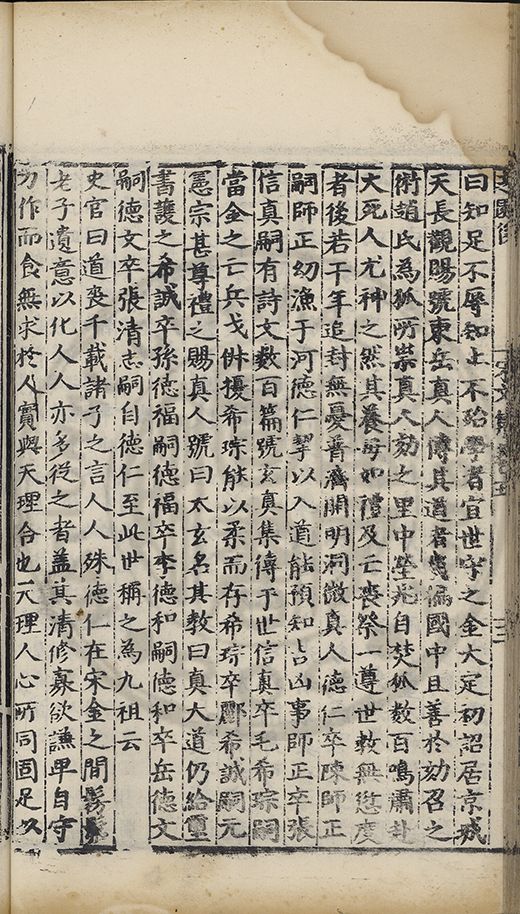 曰知足不辱知止不殆學者宜世守之金大定初詔居京城
天長觀賜號東岳真人傳其道者幾徧國中且善於劾召之
術趙氏為狐所祟真人劾之里中塋兆自焚狐數百鳴嘯赴
大死人尤神之然其養母如禮及亡喪祭一遵世教無愆度
者後若干年追封無憂普濟開明洞微真人德仁卒陳師正
嗣師正幼漁于河德仁挈以入道能預知吉凶事師正卒張
信真嗣有詩文數百篇號玄真集傳于世信真卒毛希琮嗣
當金之亡兵戈俶擾希琮能以柔而存希琮卒酈希誠嗣元
憲宗甚尊禮之賜真人號曰太玄名其教曰真大道仍給璽
書護之希誠卒孫德福嗣德福卒李德和嗣德和卒岳德文
嗣德文卒張清志嗣自德仁至此世稱之為九祖云
史官曰道喪千載諸子之言人人殊德仁在宋金之間
老子遺意以化人人亦多從之者蓋其清修寡欲謙卑自守
力作而食無求於人實與天理合也天理人心所同固足以